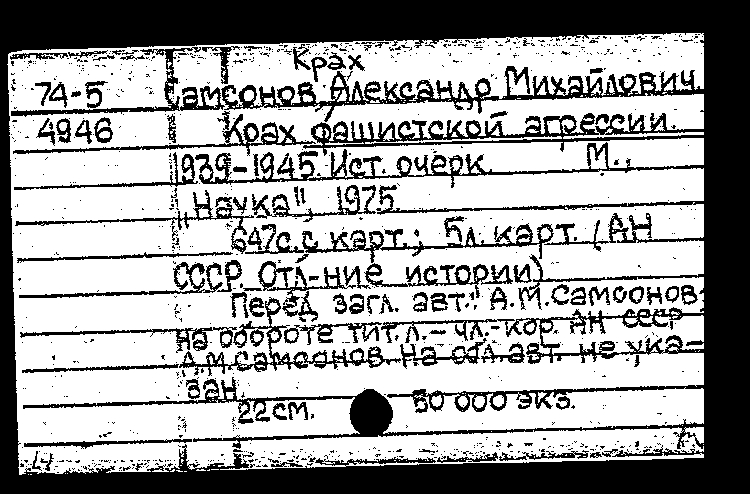 Крах
74-5 Самсонов, Александр Михайлович.
4946 Крах фашистской агрессии.
1939-1945. Ист. очерк. М.,
„Наука", 1975.
647с. с карт.; 5л. карт. (АН
СССР. Отд-ние истории)
Перед загл. авт.: А.М.Самсонов;
на обороте тит.л. – чл.-кор. АН СССР
А.М.Самсонов. На обл. авт. не ука-
зан.
22см. 50 000 экз.